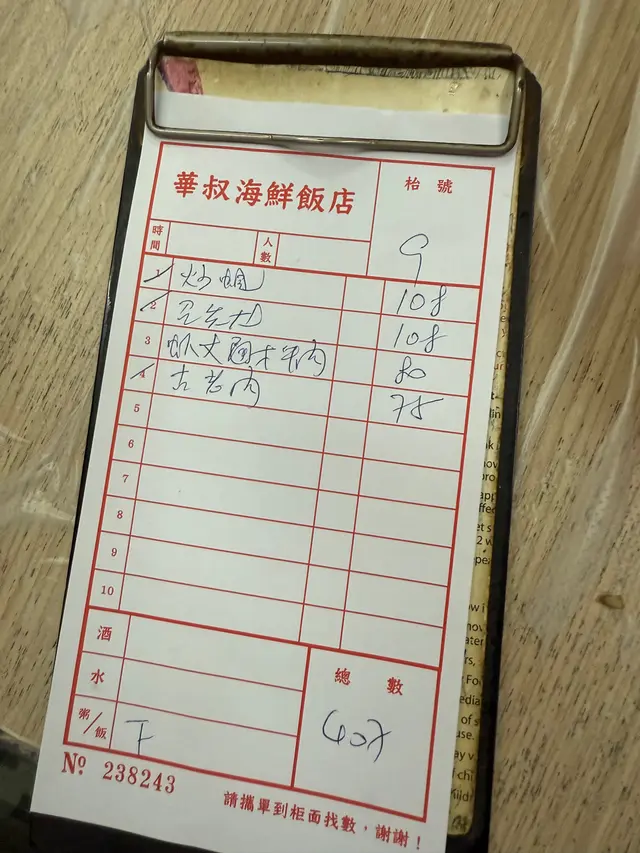 華叔海鮮飯店
枱號
時間
人數
9
1 炒蜆 108
2 108
3 牛肉 80
4 古老肉 78
5
6
7
8
9
10
酒
水
粥/飯
總數
407
No 238243
請攜單到柜面找數，謝謝！